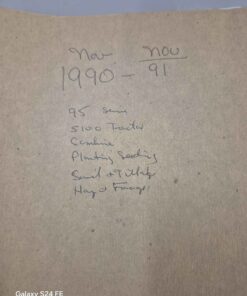 Nov - Nov
1990 - 91
95 Series
5100 Tractor
Combine
Planting Seeding
Soil + Tillage
Hay + Forage
Galaxy S24 FE